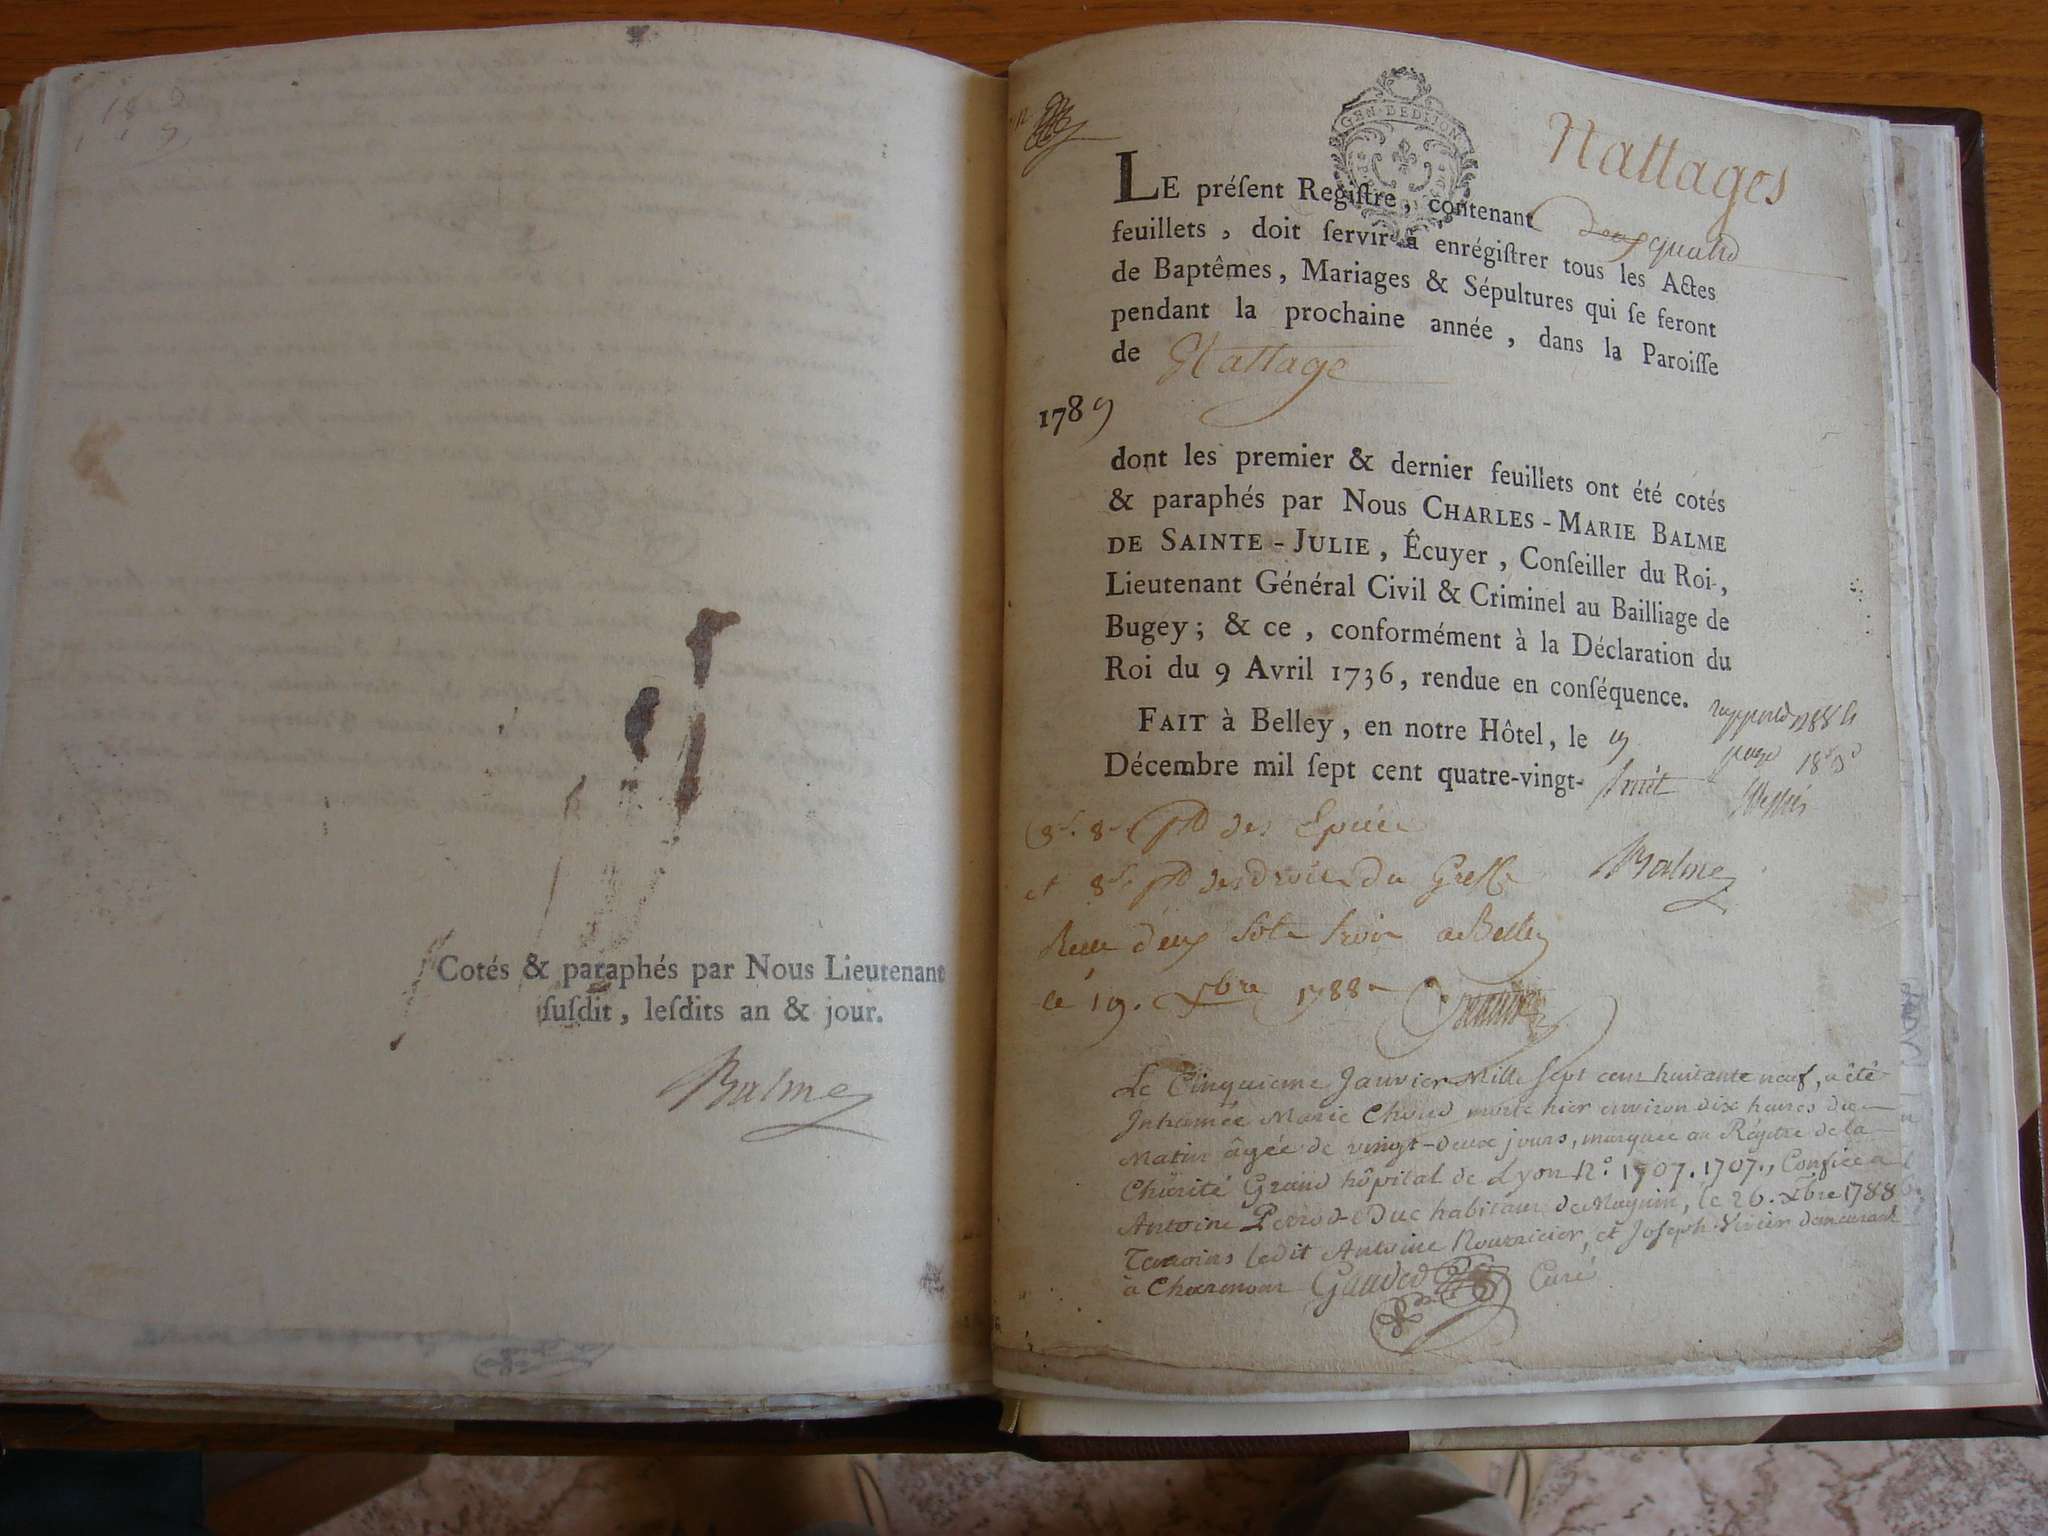 Cotés & paraphés par Nous Lieutenant
ſuſdit, leſdits an & jour.
Balme
GEN. DE DIJON
Nattages
LE préſent Regiſtre, contenant deux quatre
feuillets, doit ſervir à enrégiſtrer tous les Actes
de Baptêmes, Mariages & Sépultures qui ſe feront
pendant la prochaine année, dans la Paroiſſe
de Nattage
1789
dont les premier & dernier feuillets ont été cotés
& paraphés par Nous CHARLES-MARIE BALME
DE SAINTE-JULIE, Écuyer, Conſeiller du Roi,
Lieutenant Général Civil & Criminel au Bailliage de
Bugey; & ce, conformément à la Déclaration du
Roi du 9 Avril 1736, rendue en conſéquence.
FAIT à Belley, en notre Hôtel, le 19
Décembre mil ſept cent quatre-vingt-huit
Balme
et 8s. des droits du Greffe
Reçu deux sols trois a Belley
le 19. Xbre 1788
Le Cinquieme Janvier Mille Sept cent huitante neuf, a été
Inhumée Marie morte hier environ dix heures du
Matin âgée de vingt-deux jours, marquée au Régitre de la
Charité Grand hôpital de Lyon N.o 1707.1707., Confiée a
Antoine Perrod-Duc habitant de Nayrin, le 26. Xbre 1788
Temoins ledit Antoine Nourricier, et Joseph Vivier demeurant
à Charmont Curé